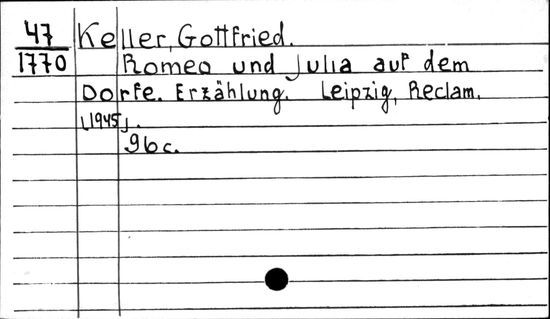 47 Keller, Gottfried.
1770 Romeo und Julia auf dem
Dorfe. Erzählung. Leipzig, Reclam,
[1945].
96 c.